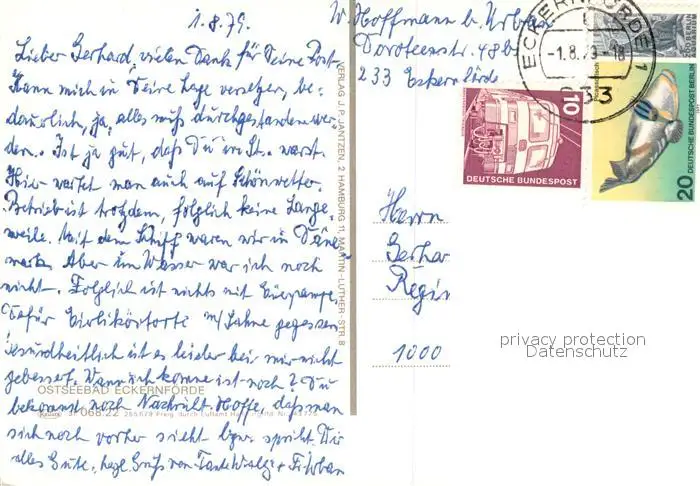 1.8.79.
Lieber Gerhard, vielen Dank für Deine Post.
Kann mich in Deine Lage versetzen, be-
dauerlich, ja, alles muß durchgestanden wer-
den. Ist ja gut, daß Du in St. warst.
Hier wartet man auch auf Schönwetter.
Betrieb ist trotzdem, folglich keine Lange-
weile. Mit dem Schiff waren wir in Däne-
mark. Aber im Wasser war ich noch
nicht. Folglich ist nichts mit
Dafür Eierlikörtorte m/Sahne gegessen
Gesundheitlich ist es leider bei mir nicht
gebessert. Wann ich komme ist noch ? Du
bekommst noch Nachricht. Hoffe, daß man
sich noch vorher sieht bzw. spricht. Dir
alles Gute, herzl. Gruß von Tante
OSTSEEBAD ECKERNFÖRDE
VERLAG J. P. JANTZEN, 2 HAMBURG 11, MARTIN-LUTHER-STR. 8
W. Hoffmann b. Urban
Doroteenstr. 48b
233 Eckernförde
ECKERNFÖRDE 1
-1.8.79-18
233
10
DEUTSCHE BUNDESPOST
20
DEUTSCHE BUNDESPOST BERLIN
Herrn
Gerhar
Regin
1000
privacy protection
Datenschutz